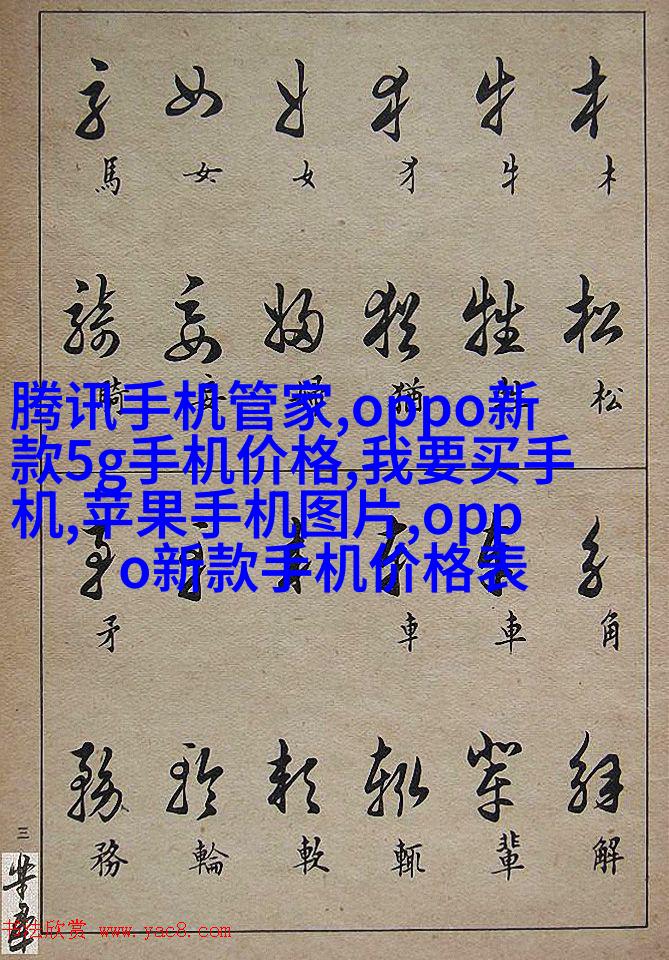 木 牛 犭 女 女 馬
松 猶 騎
腾讯手机管家,oppo新
款5g手机价格,我要买手
机,苹果手机图片,opp
o新款手机价格表
角 車 車 矛
解 輩 輒 軟 輪 務
三
书法欣赏 www.yac8.com